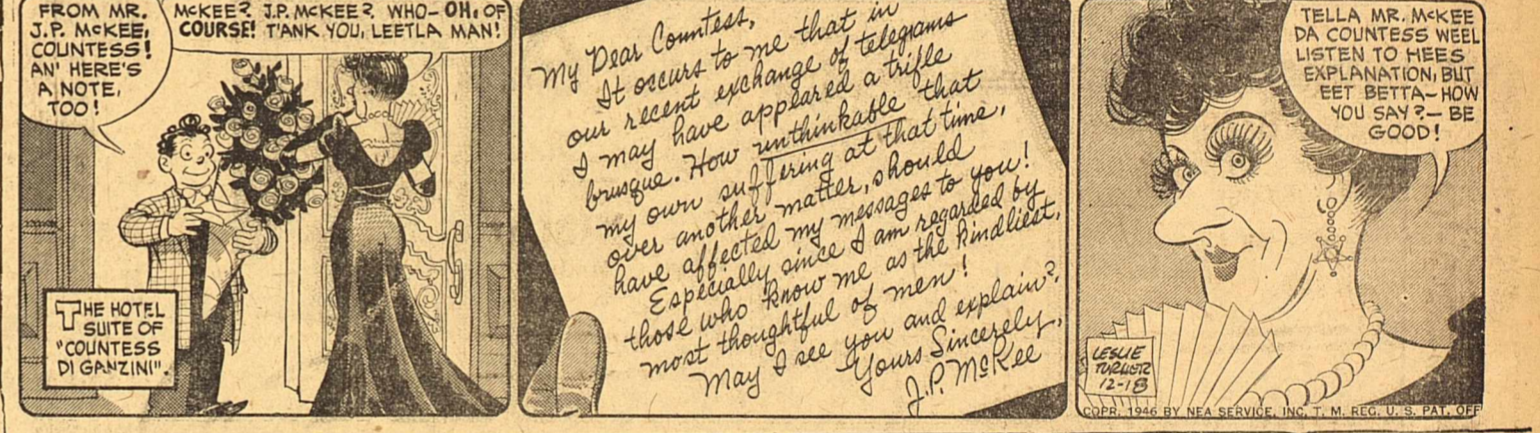 FROM MR.
J.P. McKEE,
COUNTESS!
AN' HERE'S
A NOTE,
TOO!
McKEE? J.P. McKEE? WHO- OH, OF
COURSE! T'ANK YOU, LEETLA MAN!
THE HOTEL
SUITE OF
"COUNTESS
DI GANZINI".
My Dear Countess,
It occurs to me that in
our recent exchange of telegrams
I may have appeared a trifle
brusque. How unthinkable that
my own suffering at that time,
over another matter, should
have affected my messages to you!
Especially since I am regarded by
those who know me as the kindliest,
most thoughtful of men!
May I see you and explain?
Yours Sincerely,
J.P. McKee
TELLA MR. McKEE
DA COUNTESS WEEL
LISTEN TO HEES
EXPLANATION, BUT
EET BETTA- HOW
YOU SAY?- BE
GOOD!
LESLIE
TURNER
12-18
COPR. 1946 BY NEA SERVICE, INC. T. M. REG. U. S. PAT. OFF